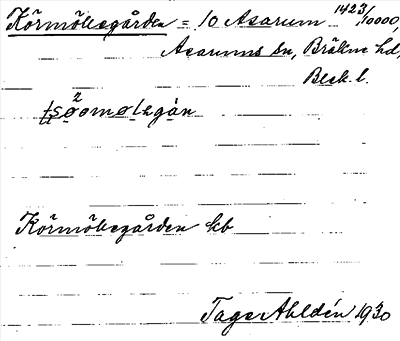 Körmöllegården = 10 Asarum 1423/10000,
Asarums sn, Bräkne hd,
Blek. l.
Körmöllegården kb
Tage Ahldén 1930